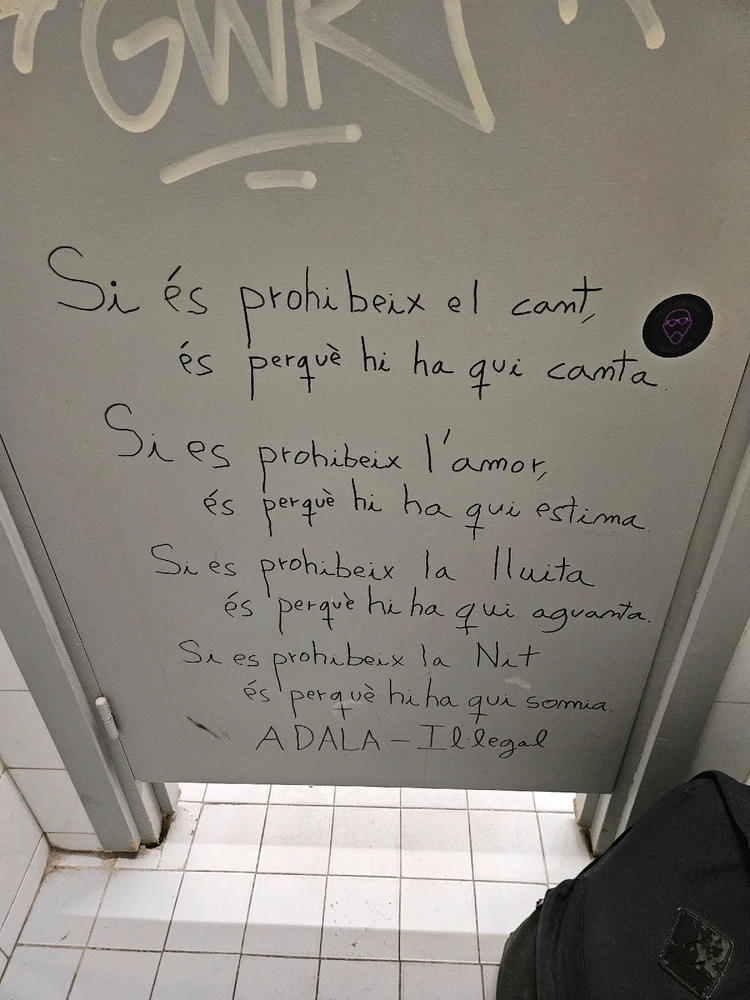 GWR
Si és prohibeix el cant,
és perquè hi ha qui canta.
Si es prohibeix l'amor,
és perquè hi ha qui estima.
Si es prohibeix la lluita
és perquè hi ha qui aguanta.
Si es prohibeix la Nit
és perquè hi ha qui somia.
ADALA – Il·legal